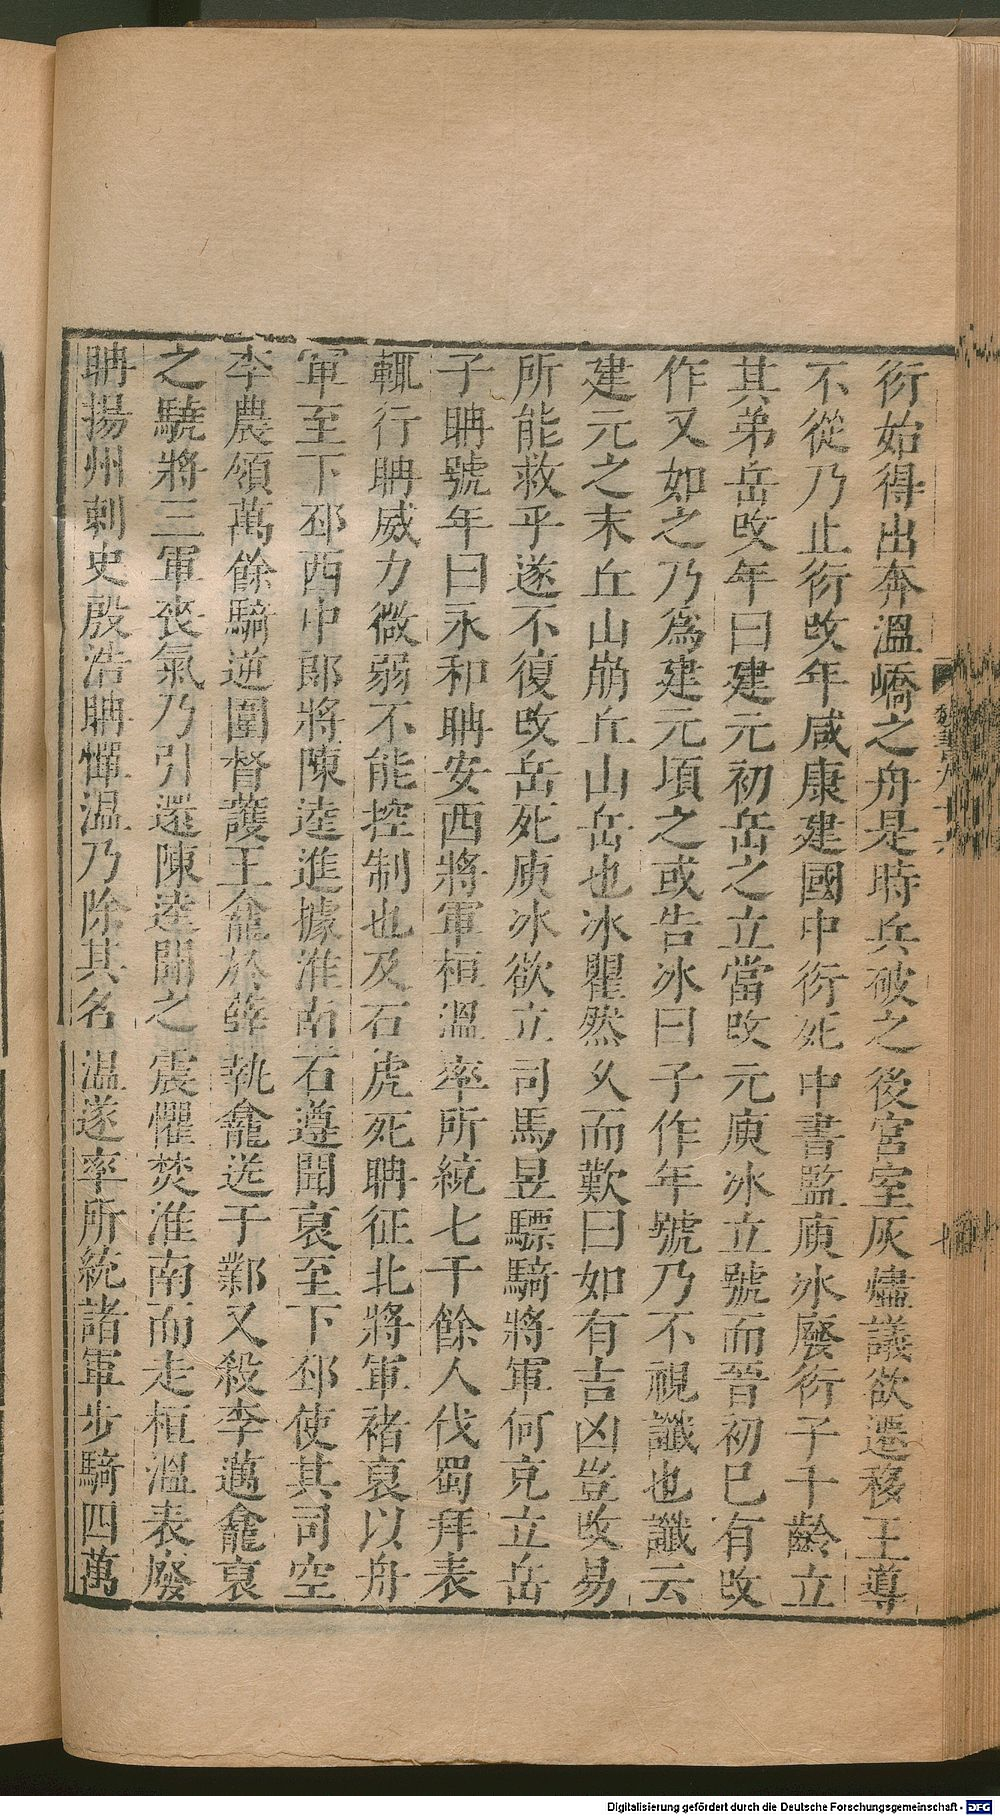 衍始得出奔溫嶠之舟是時兵破之後宮室灰燼議欲遷移王導
不從乃止衍改年咸康建國中衍死中書監庾冰廢衍子千齡立
其弟岳改年曰建元初岳之立當改元庾冰立號而晉初已有改
作又如之乃為建元頃之或告冰曰子作年號乃不視讖也讖云
建元之末丘山崩丘山岳也冰瞿然久而歎曰如有吉凶豈改易
所能救乎遂不復改岳死庾冰欲立司馬昱驃騎將軍何充立岳
子聃號年曰永和聃安西將軍桓溫率所統七千餘人伐蜀拜表
輒行聃威力微弱不能控制也及石虎死聃征北將軍褚裒以舟
軍至下邳西中郎將陳逵進據淮南石遵聞裒至下邳使其司空
李農領萬餘騎逆圍督護王龕於薛執龕送于鄴又殺李邁龕裒
之驍將三軍喪氣乃引還陳逵聞之震懼焚淮南而走桓溫表廢
聃揚州刺史殷浩聃憚溫乃除其名溫遂率所統諸軍步騎四萬
魏書九十六
十
Digitalisierung gefördert durch die Deutsche Forschungsgemeinschaft - DFG